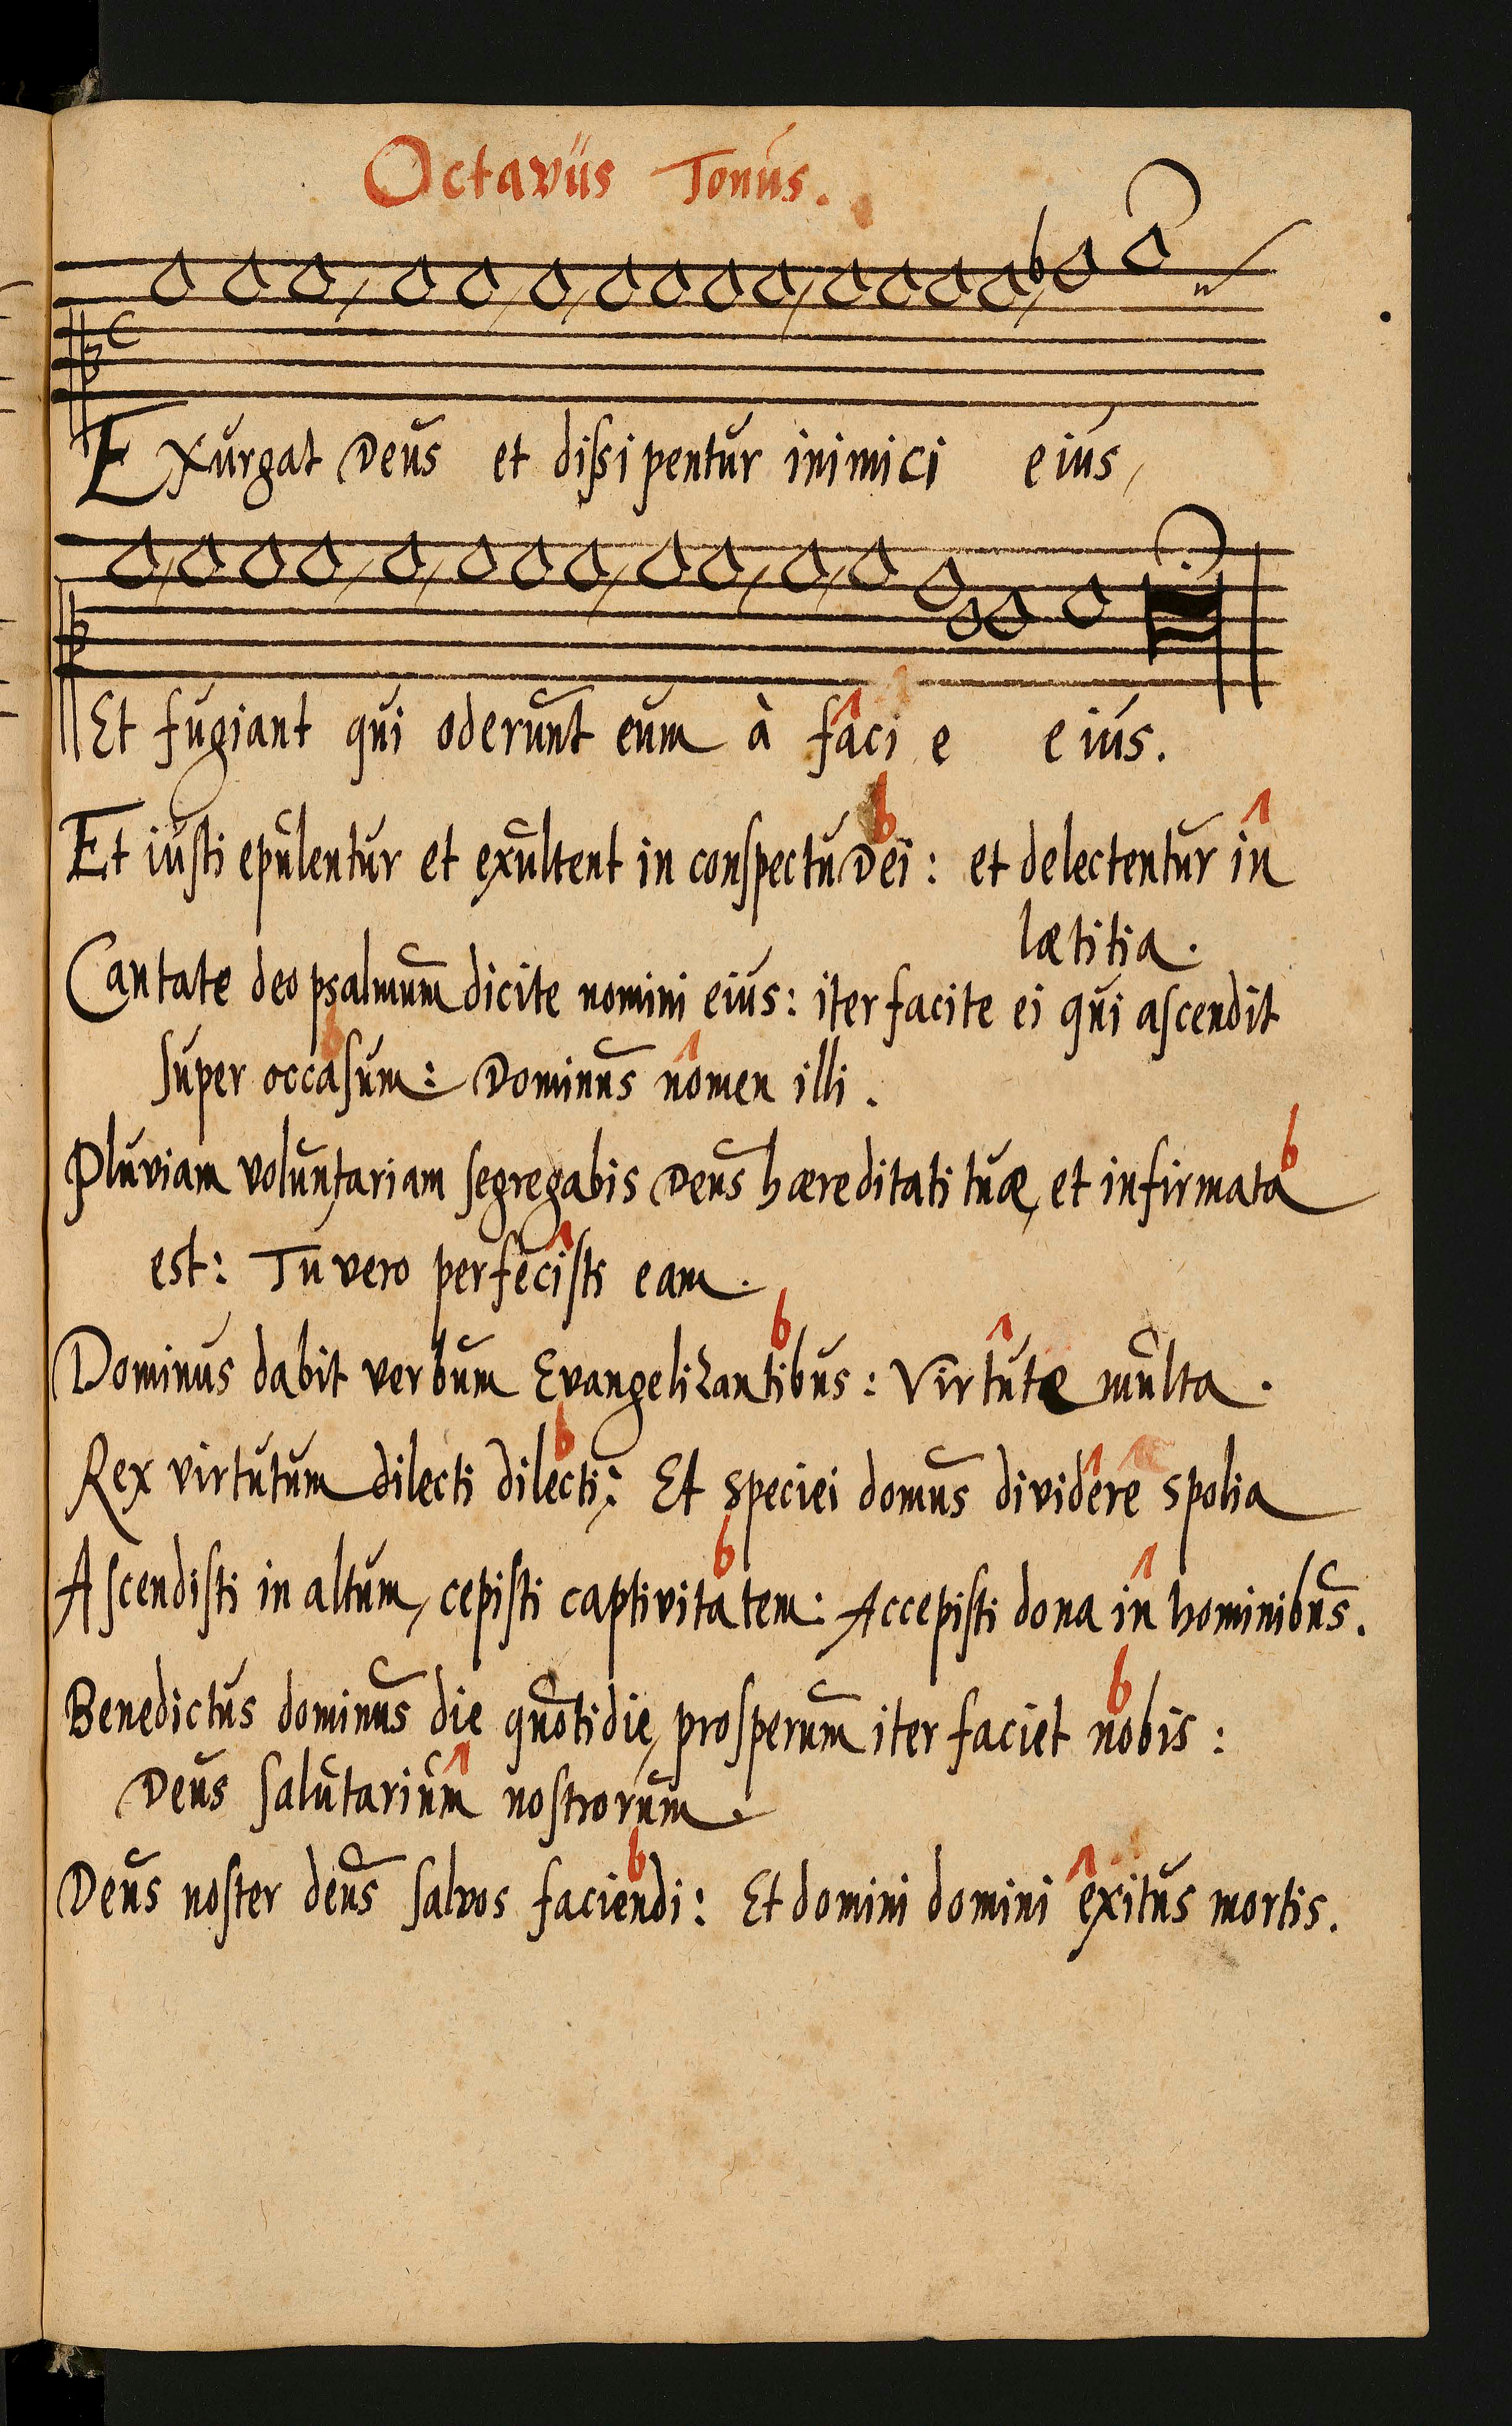 Octavus Tonus.
Exurgat Deus et dissipentur inimici eius,
Et fugiant qui oderunt eum à facie eius.
Et iusti epulentur et exultent in conspectu Dei: et delectentur in
lætitia.
Cantate deo psalmum dicite nomini eius: iter facite ei qui ascendit
super occasum: Dominus nomen illi.
Pluviam voluntariam segregabis Deus hæreditati tuæ, et infirmata
est: Tu vero perfecisti eam.
Dominus dabit verbum Evangelizantibus: Virtute multa.
Rex virtutum dilecti dilecti: Et speciei domus dividere spolia
Ascendisti in altum, cepisti captivitatem: Accepisti dona in hominibus.
Benedictus dominus die quotidie, prosperum iter faciet nobis:
Deus salutarium nostrorum.
Deus noster deus salvos faciendi: Et domini domini exitus mortis.